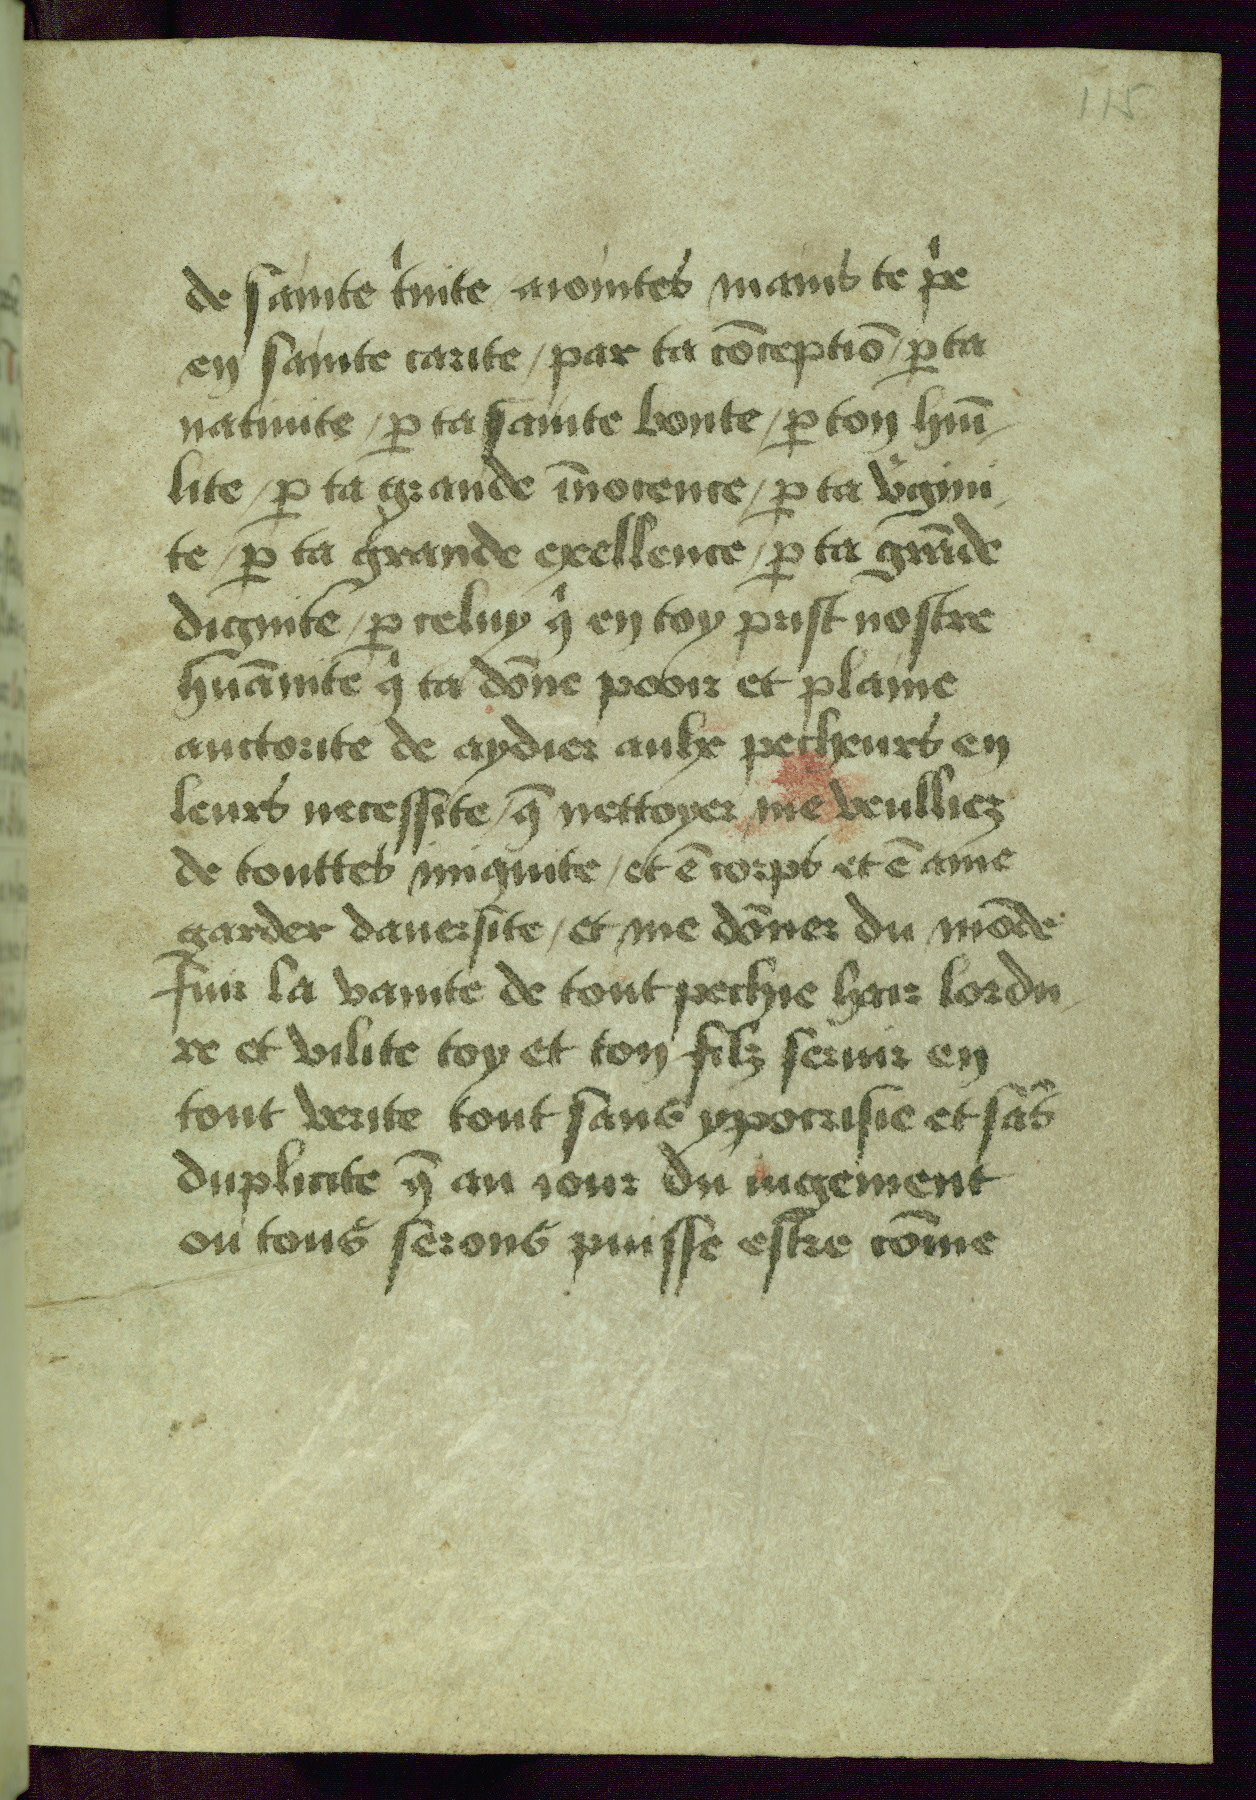 115
de sainte tͥnite aiointes mains te pͥe
en sainte carite / par ta cōceptiō / ꝑ ta
natiuite / ꝑ ta sainte bonte / ꝑ ton hūi
lite / ꝑ ta grande īnocence / ꝑ ta v̾gini
te / ꝑ ta grande exellence / ꝑ ta grāde
dignite / ꝑ celuy qͥ en toy prist nostre
huāmite qͥ ta dōne pooir et plaine
auctorite de aydier aulx pecheurs en
leurs necessite / q̄ nettoyer me veulliez
de touttes iniquite / et ē corps et ē ame
garder dauersite / et me dōner du mōde
fuir la vanite de tout pechie hair lordu
re et vilite toy et ton filz seruir en
tout verite tout sans ypocrisie et sās
duplicite q̄ au iour du iugement
ou tous serons puisse estre cōme